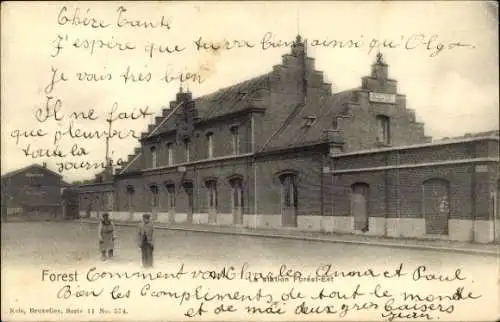 Chère Tante
J'espère que tu va bien ainsi que Olga
Je vais très bien
Il ne fait
que pleuvoir
toute la
journée
Forest
La station Forest-Est
Comment vont Charles Anna et Paul
Bien les compliments de tout le monde
et de moi deux gros baisers
Jean.
Nels, Bruxelles, Serie 11 No. 574.